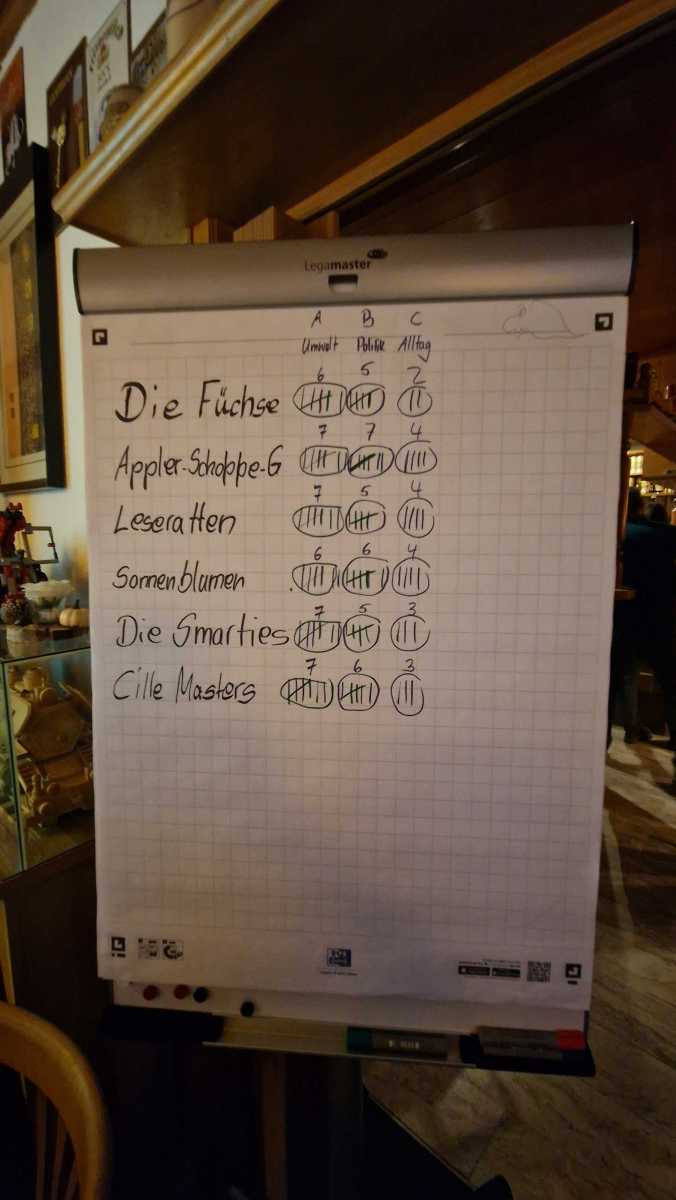 Legamaster
A B C
Umwelt Politik Alltag
6 5 2
Die Füchse
7 7 4
Appler-Schoppe-G
7 5 4
Leseratten
6 6 4
Sonnenblumen
7 5 3
Die Smarties
7 6 3
Cille Masters